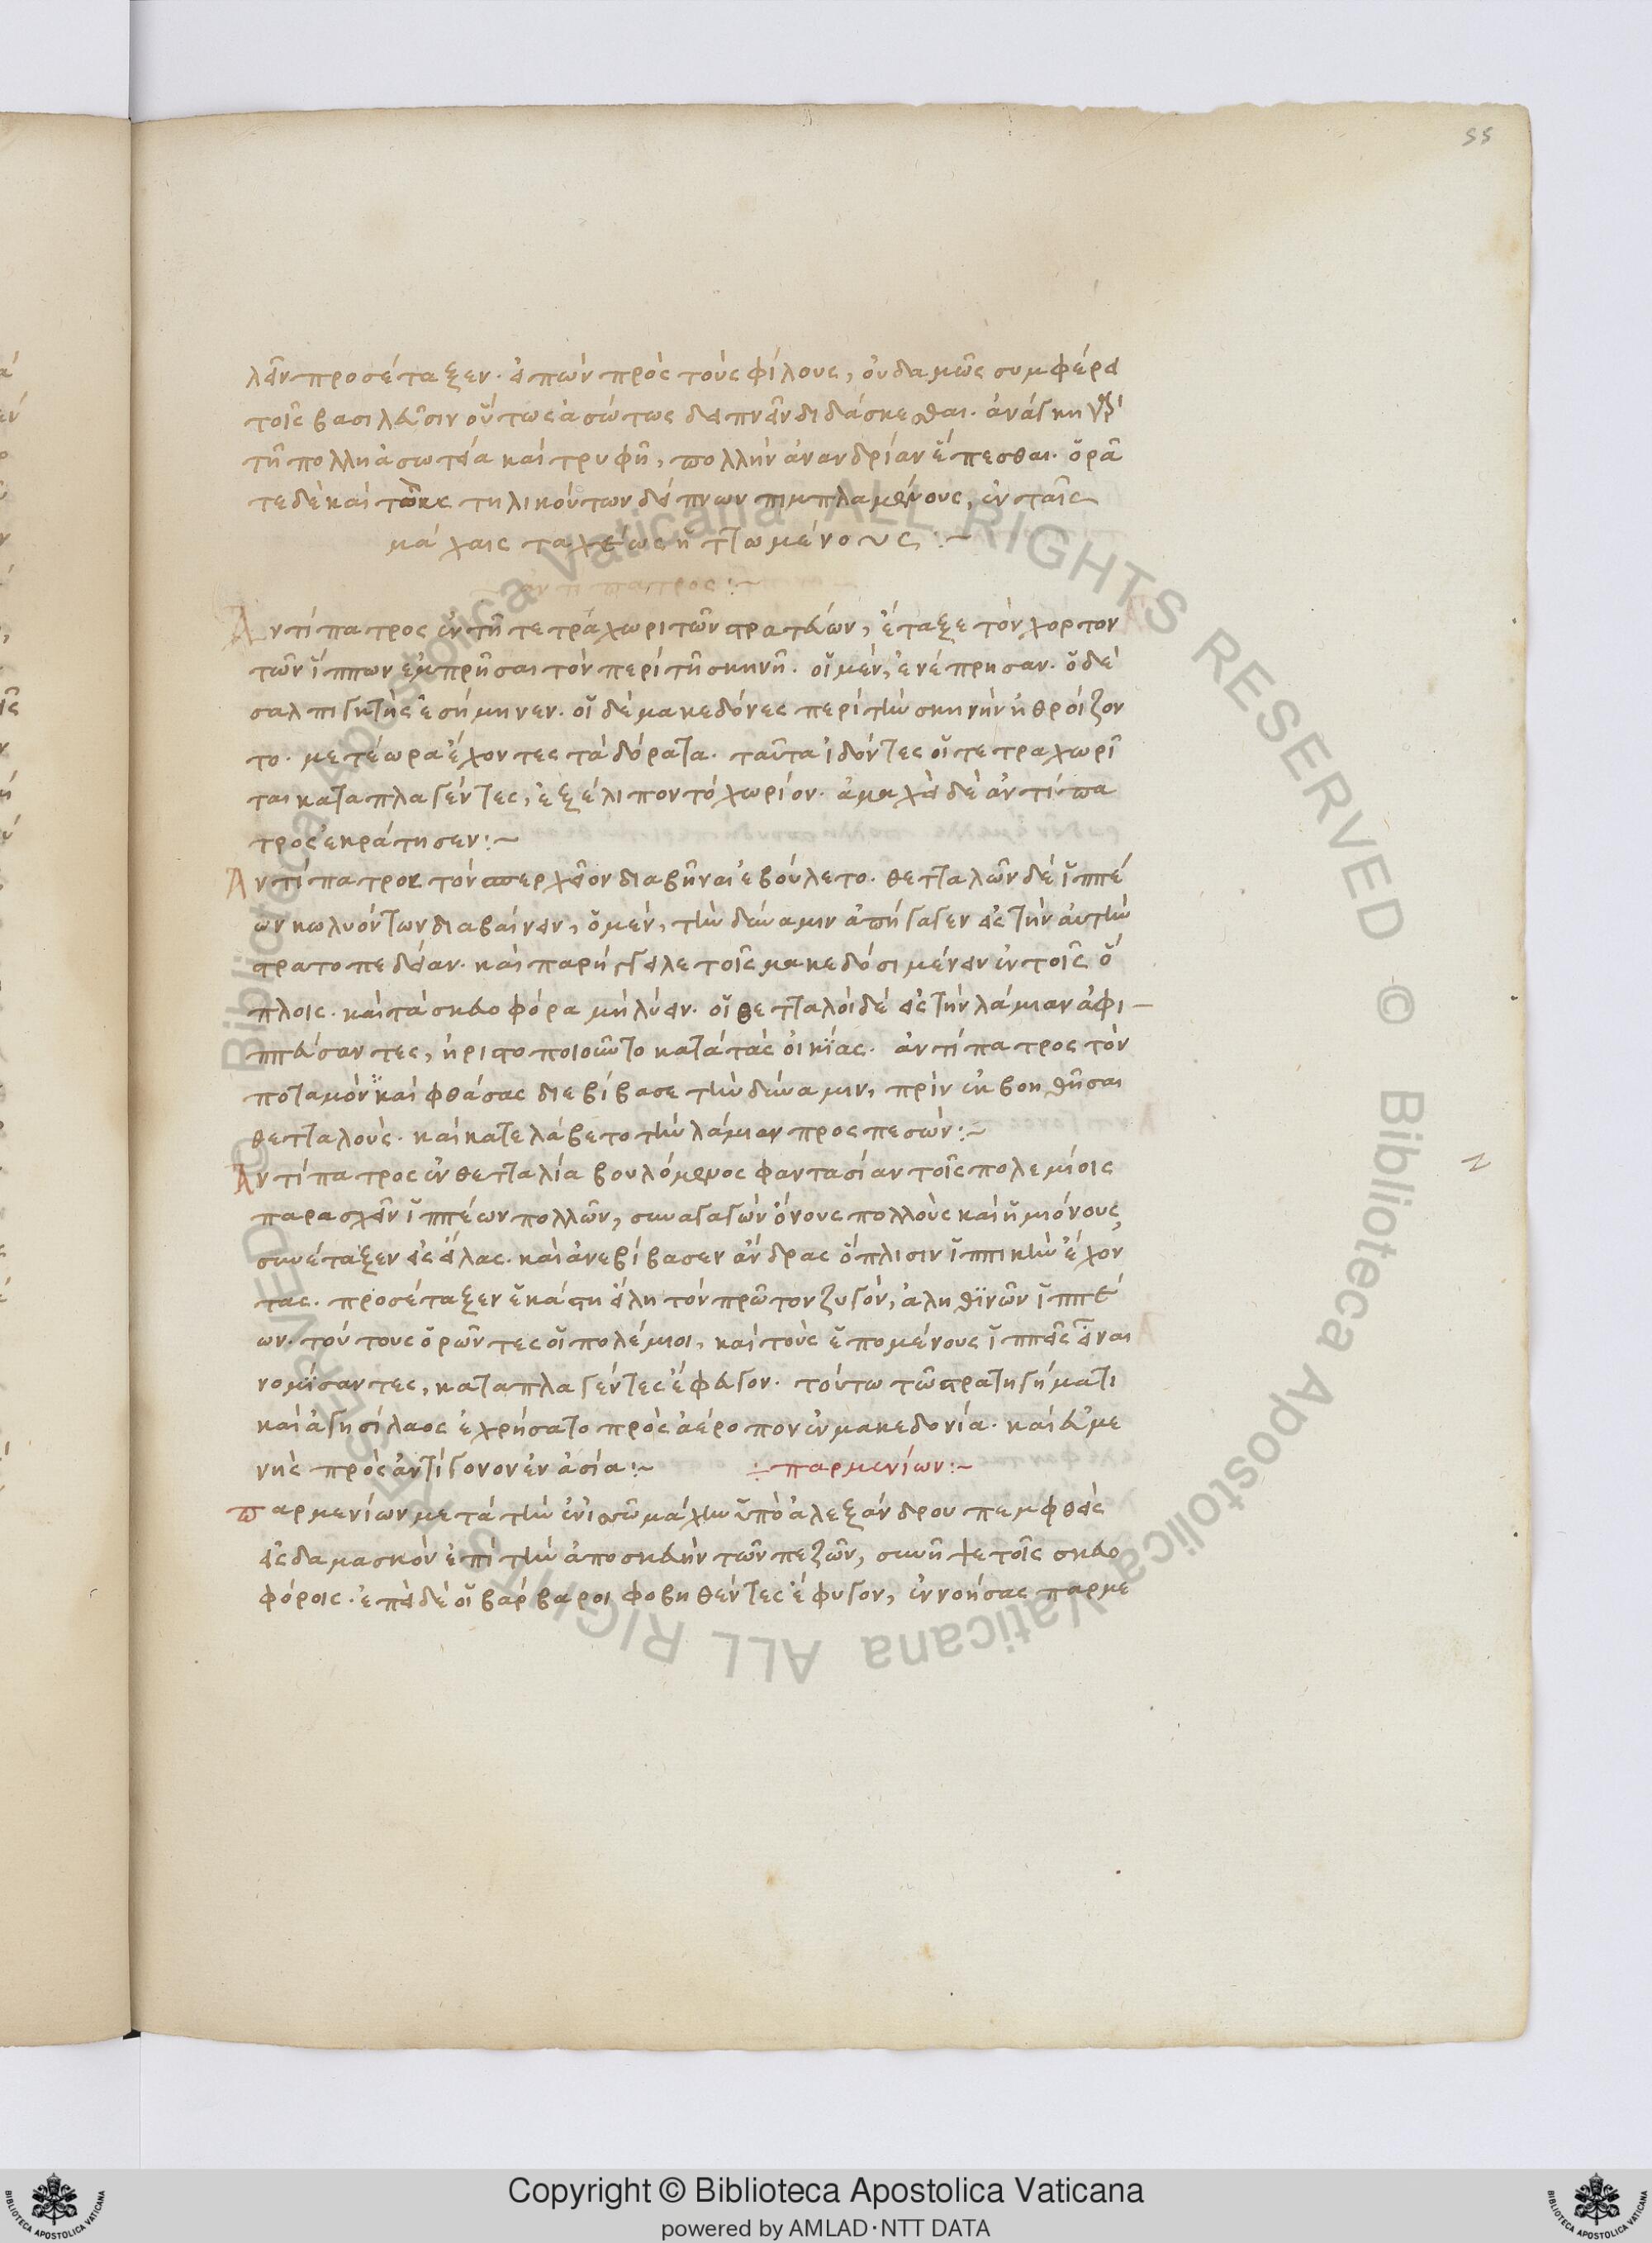 55
λεῖν προσέταξεν. εἰπὼν πρὸς τοὺς φίλους, οὐδαμῶς συμφέρει
τοῖς βασιλεῦσιν οὕτως ἀσώτως δειπνεῖν διδάσκεσθαι. ἀνάγκη γὰρ
τῇ πολλῇ ἀσωτεία καὶ τρυφῆ, πολλὴν ἀνανδρίαν ἕπεσθαι. ὁρᾶ
τε δὲ καὶ τηλικούτων δείπνων πιμπλαμένους, ἐν ταῖς
μάχαις ταχέως ἡττωμένους :~
ἀντίπατρος :~
Αντίπατρος ἐν τῇ τετραχωριτῶν στρατεύων, ἔταξε τὸν χορτον
τῶν ἵππων ἐμπρῆσαι τὸν περὶ τῆ σκηνῆ. οἱ μὲν, ἐνέπρησαν. ὁ δὲ
σαλπιγκτὴς ἐσήμηνεν. οἱ δὲ μακεδόνες περὶ τὴν σκηνὴν ἠθροίζον
το. μετέωρα ἔχοντες τὰ δόρατα. ταῦτα ἰδόντες οἱ τετραχωρῖ
ται καταπλαγέντες, ἐξέλιπον τὸ χωρίον. ἀμαχεὶ δὲ ἀντίπα
τρος ἐκράτησεν :~
Αντίπατρος τὸν σπερχειὸν διαβῆναι ἐβούλετο. θετταλῶν δὲ ἱππέ
ων κωλυόντων διαβαίνειν, ὁ μὲν, τὴν δύναμιν ἀπήγαγεν εἰς τὴν αὐτὴν
στρατοπεδείαν. καὶ παρήγγειλε τοῖς μακεδόσι μένειν ἐν τοῖς ὅ
πλοις. καὶ τὰ σκευοφόρα μὴ λύειν. οἱ θετταλοὶ δὲ εἰς τὴν λάμιαν ἀφι
ππεύσαντες, ἠριστοποιοῦντο κατὰ τὰς οἰκίας. ἀντίπατρος τὸν
ποταμὸν καὶ φθάσας διεβίβασε τὴν δύναμιν, πρὶν ἐκβοηθῆσαι
θετταλοὺς. καὶ κατελάβετο τὴν λάμιαν προσπεσών :~
Αντίπατρος ἐν θετταλία βουλόμενος φαντασίαν τοῖς πολεμίοις
παρασχεῖν ἱππέων πολλῶν, συναγαγὼν ὄνους πολλοὺς καὶ ἡμιόνους
συνέταξεν εἰς εἴλας. καὶ ἀνεβίβασεν ἄνδρας ὅπλισιν ἱππικὴν ἔχον
τας. προσέταξεν ἑκάστη εἴλη τὸν πρῶτον ζυγὸν, ἀληθινῶν ἱππέ
ων. τούτους ὁρῶντες οἱ πολέμιοι, καὶ τοὺς ἑπομένους ἱππεῖς εἶναι
νομίσαντες, καταπλαγέντες ἔφευγον. τούτω τῶ στρατηγήματι
καὶ ἀγησίλαος ἐχρήσατο πρὸς ἀέροπον ἐν μακεδονία. καὶ εὐμε
νὴς πρὸς ἀντίγονον ἐν ἀσία :~ ÷ παρμενίων :~
παρμενίων μετὰ τὴν ἐν ἰσσῶ μάχην ὑπὸ ἀλεξάνδρου πεμφθεὶς
εἰς δαμασκὸν ἐπὶ τὴν ἀποσκευὴν τῶν πεζῶν, συνῆψε τοῖς σκευο
φόροις. ἐπεὶ δὲ οἱ βάρβαροι φοβηθέντες ἔφυγον, ἐννοήσας παρμε
Copyright © Biblioteca Apostolica Vaticana
powered by AMLAD·NTT DATA